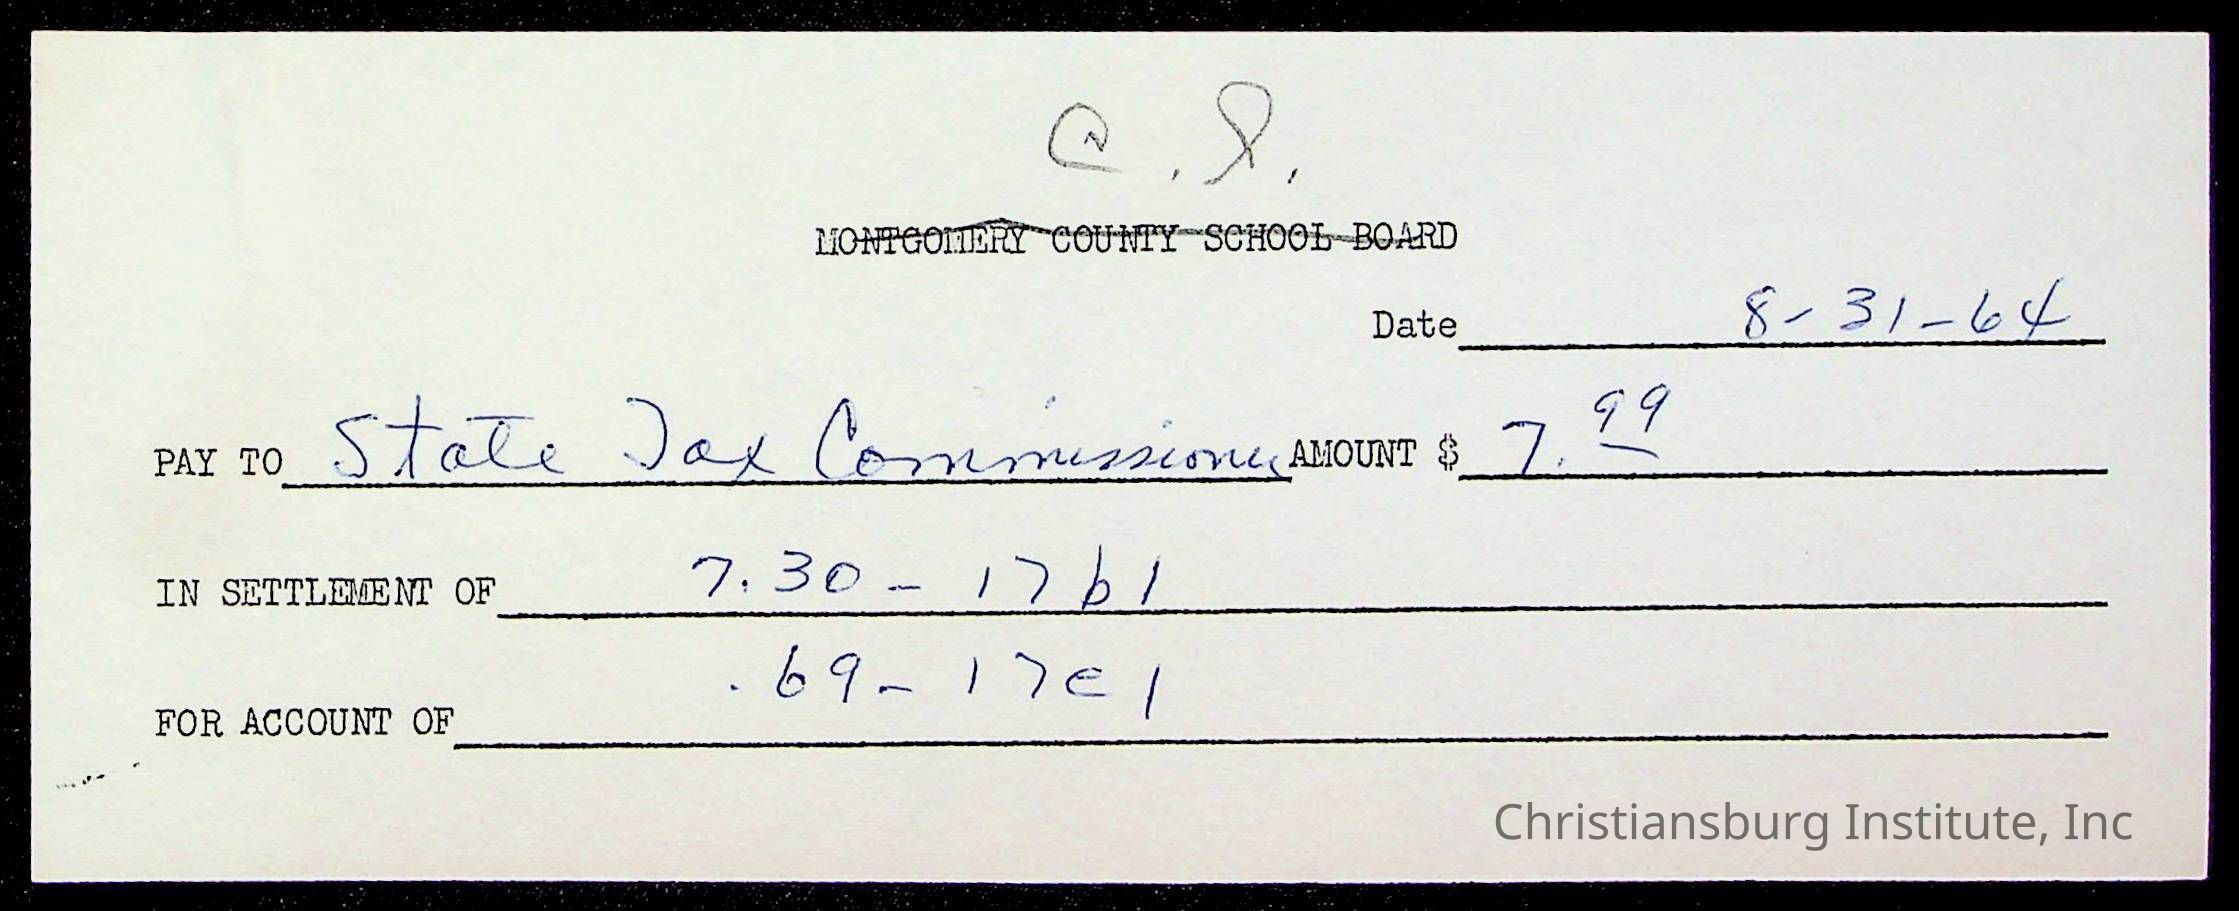 C. I.
MONTGOMERY COUNTY SCHOOL BOARD
Date 8-31-64
PAY TO State Tax Commissioner AMOUNT $ 7.99
IN SETTLEMENT OF 7.30 - 17b1
.69 - 17c1
FOR ACCOUNT OF
Christiansburg Institute, Inc